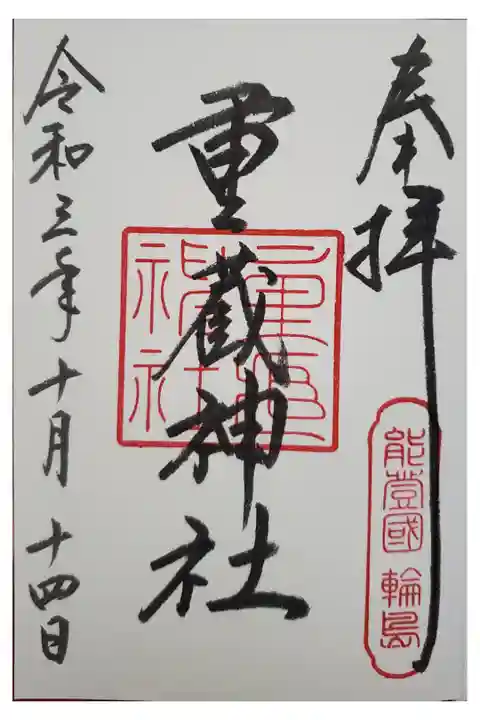 奉拝
能登國 輪島
重蔵神社
令和三年十月十四日